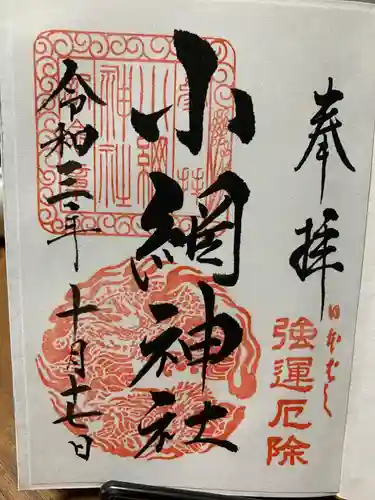 奉拝
日本ばし
強運厄除
小網神社
令和三年
十月十七日